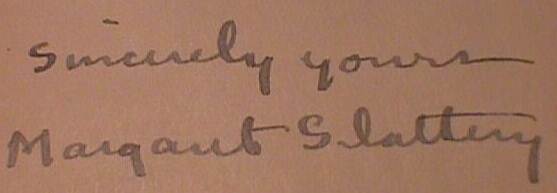 Sincerely yours
Margaret Slattery